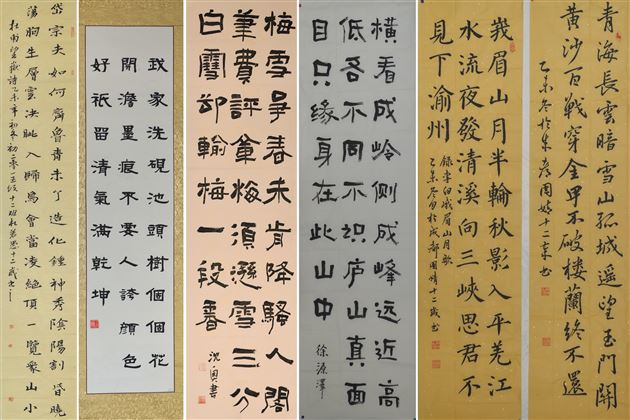 岱宗夫如何齊魯青未了造化鍾神秀陰陽割昏曉
蕩胸生層雲決眦入歸鳥會當凌絶頂一覽衆山小
杜甫望嶽詩乙未年初冬
我家洗硯池頭樹個個花
開澹墨痕不要人誇顏色
好祇留清氣滿乾坤
梅雪爭春未肯降騷人閣
筆費評章梅須遜雪三分
白雪却輸梅一段香
橫看成岭侧成峰远近高
低各不同不识庐山真面
目只缘身在此山中
徐源澤
峩眉山月半輪秋影入平羌江
水流夜發清溪向三峽思君不
見下渝州
録李白峨眉山月歌
乙未冬於成都周靖十二歲書
青海長雲暗雪山孤城遥望玉門關
黄沙百戰穿金甲不破楼蘭終不還
乙未冬於
十二歲書